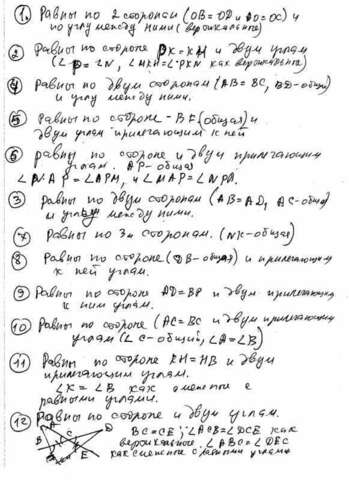 ① Равны по 2 сторонам (OB=OD и AO=OC) и
по углу между ними (вертикальные)
② Равны по стороне PK=KH и двум углам
(∠P=∠N, ∠MKH=∠PKN как вертикальные)
④ Равны по двум сторонам (AB=BC, BD-общая)
и углу между ними.
⑤ Равны по стороне - BF (общая) и
двум углам прилегающим к ней
⑥ равны по стороне и двум прилегающим
углам. AP-общая
∠NAP=∠APM, и ∠MAP=∠NPA.
③ Равны по двум сторонам (AB=AD, AC-общая)
и углу между ними.
⑦ Равны по 3м сторонам. (NK-общая)
⑧ Равны по стороне (DB-общая) и прилегающим
к ней углам.
⑨ Равны по стороне AD=BP и двум прилегающим
к ним углам.
⑩ Равны по стороне (AC=BC и двум прилегающим
углам (∠C-общий, ∠A=∠B)
⑪ Равны по стороне KH=HB и двум
прилегающим углам.
∠K=∠B как смежные с
равными углами.
⑫ Равны по стороне и двум углам.
A D
B C E
BC=CE; ∠ACB=∠DCE как
вертикальные. ∠ABC=∠DEC
как смежные с равными углами